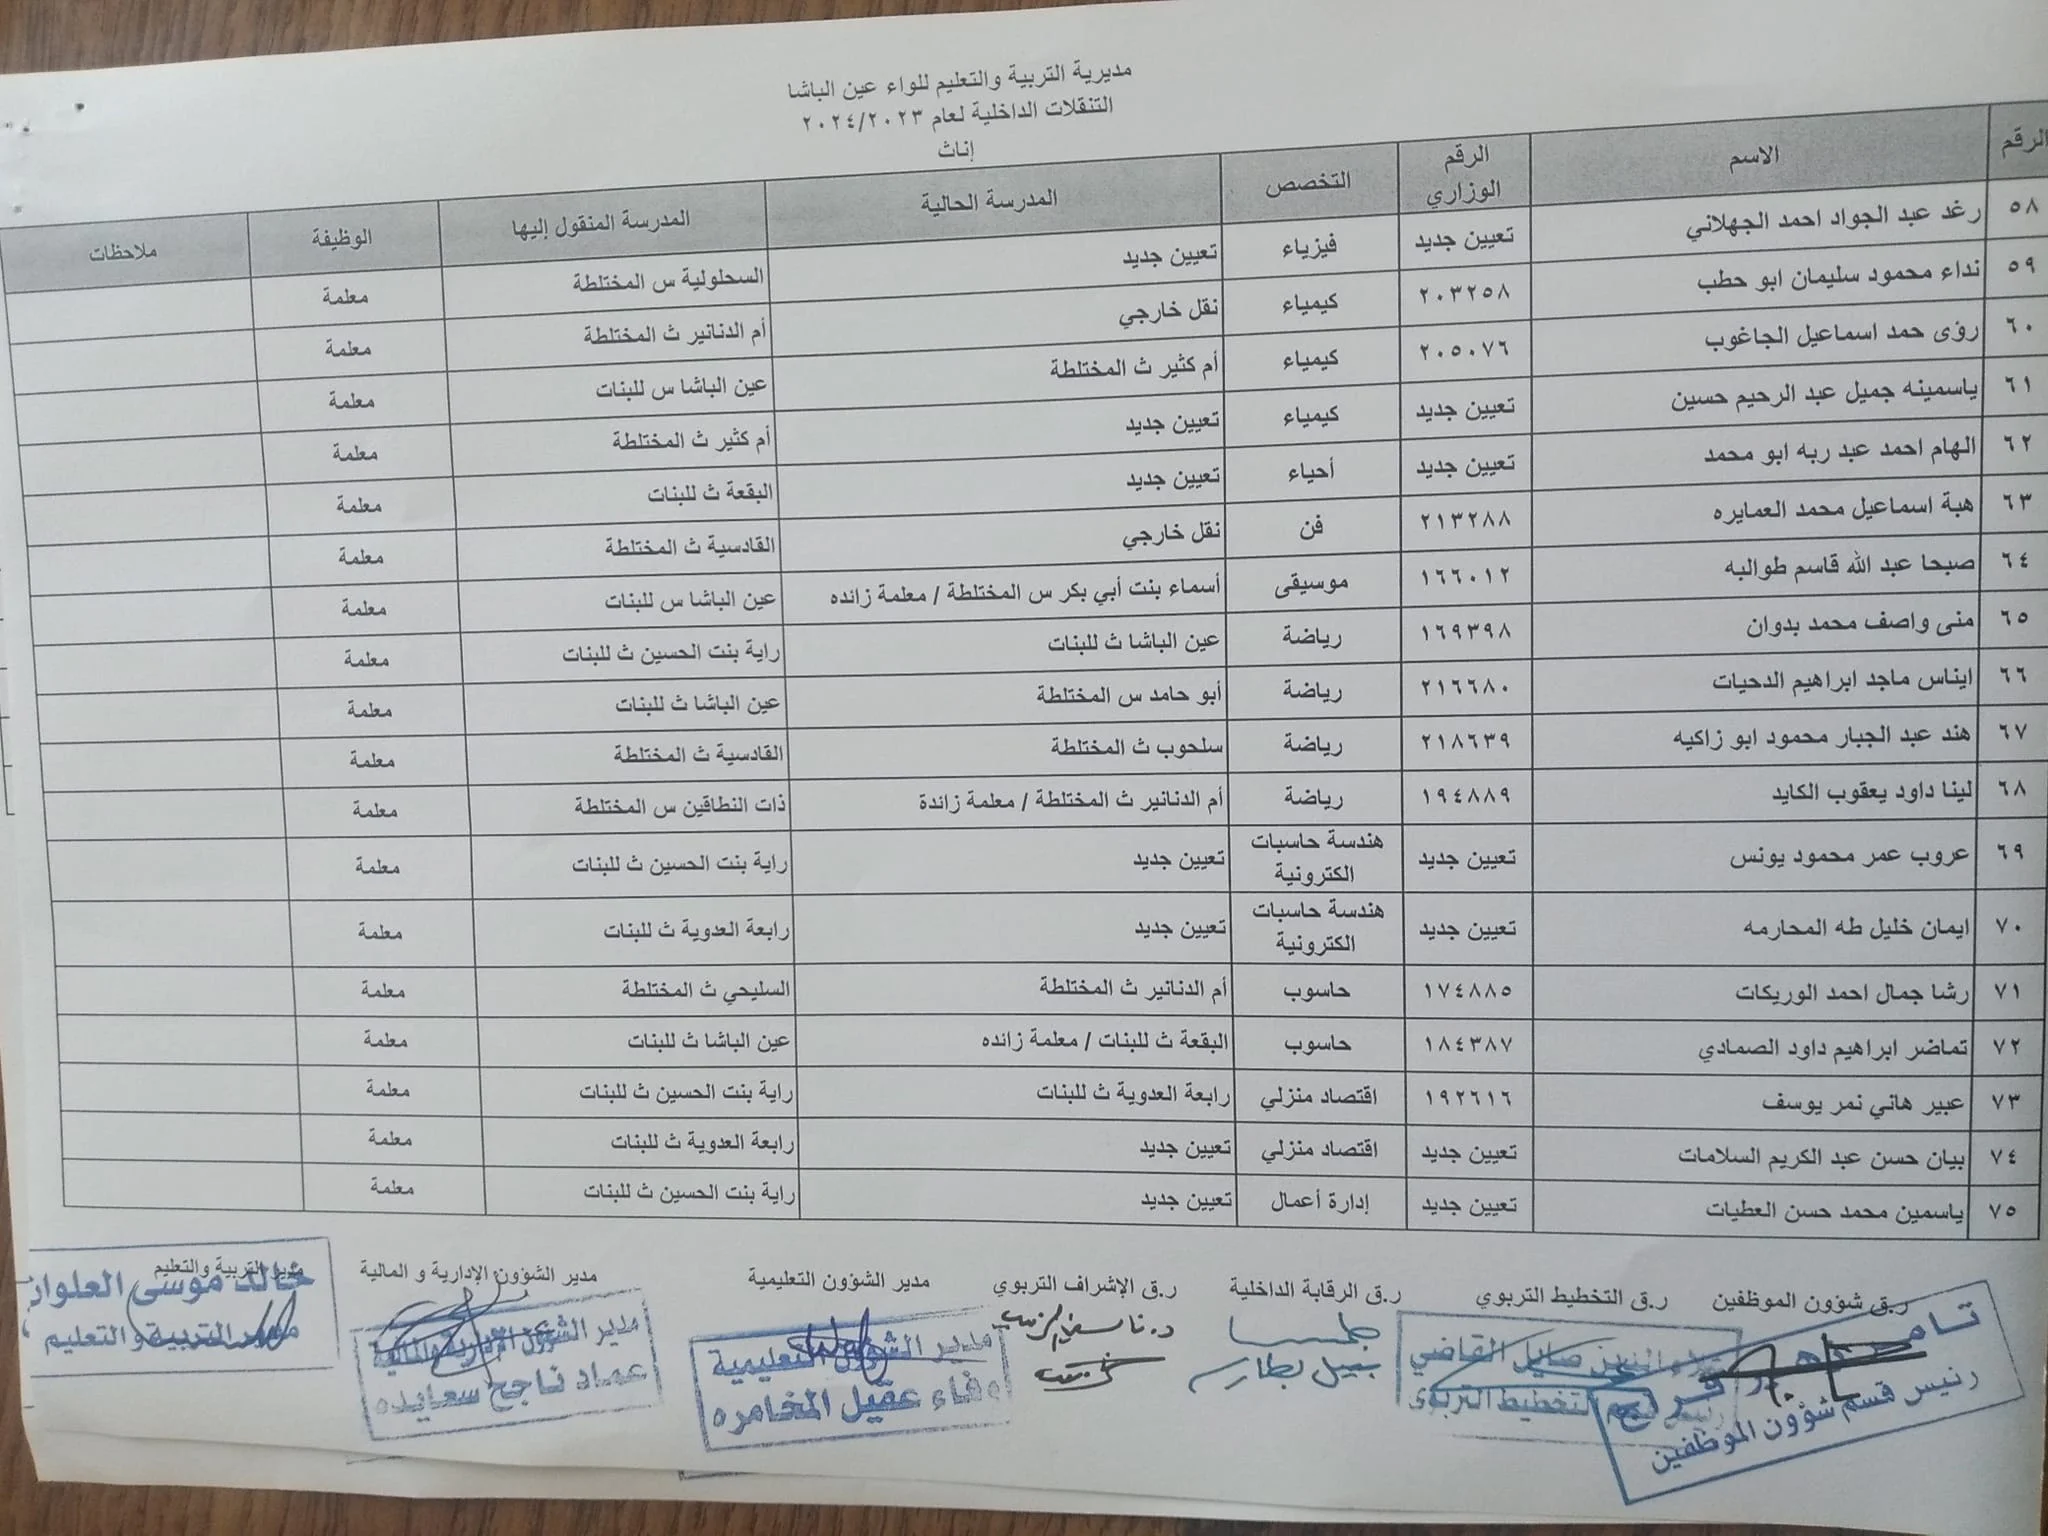 مديرية التربية والتعليم للواء عين الباشا
التنقلات الداخلية لعام ٢٠٢٤/٢٠٢٣
إناث
الرقم الاسم الرقم الوزاري التخصص المدرسة الحالية المدرسة المنقول إليها الوظيفة ملاحظات
٥٨ رغد عبد الجواد احمد الجهلاني تعيين جديد فيزياء تعيين جديد السحلولية س المختلطة معلمة
٥٩ نداء محمود سليمان ابو حطب ٢٠٣٢٥٨ كيمياء نقل خارجي أم الدنانير ث المختلطة معلمة
٦٠ رؤى حمد اسماعيل الجاغوب ٢٠٥٠٧٦ كيمياء أم كثير ث المختلطة عين الباشا س للبنات معلمة
٦١ ياسمينه جميل عبد الرحيم حسين تعيين جديد كيمياء تعيين جديد أم كثير ث المختلطة معلمة
٦٢ الهام احمد عبد ربه ابو محمد تعيين جديد أحياء تعيين جديد البقعة ث للبنات معلمة
٦٣ هبة اسماعيل محمد العمايره ٢١٣٢٨٨ فن نقل خارجي القادسية ث المختلطة معلمة
٦٤ صبحا عبد الله قاسم طوالبه ١٦٦٠١٢ موسيقى أسماء بنت أبي بكر س المختلطة / معلمة زائده عين الباشا س للبنات معلمة
٦٥ منى واصف محمد بدوان ١٦٩٣٩٨ رياضة عين الباشا ث للبنات راية بنت الحسين ث للبنات معلمة
٦٦ ايناس ماجد ابراهيم الدحيات ٢١٦٦٨٠ رياضة أبو حامد س المختلطة عين الباشا ث للبنات معلمة
٦٧ هند عبد الجبار محمود ابو زاكيه ٢١٨٦٣٩ رياضة سلحوب ث المختلطة القادسية ث المختلطة معلمة
٦٨ لينا داود يعقوب الكايد ١٩٤٨٨٩ رياضة أم الدنانير ث المختلطة / معلمة زائدة ذات النطاقين س المختلطة معلمة
٦٩ عروب عمر محمود يونس تعيين جديد هندسة حاسبات الكترونية تعيين جديد راية بنت الحسين ث للبنات معلمة
٧٠ ايمان خليل طه المحارمه تعيين جديد هندسة حاسبات الكترونية تعيين جديد رابعة العدوية ث للبنات معلمة
٧١ رشا جمال احمد الوريكات ١٧٤٨٨٥ حاسوب أم الدنانير ث المختلطة السليحي ث المختلطة معلمة
٧٢ تماضر ابراهيم داود الصمادي ١٨٤٣٨٧ حاسوب البقعة ث للبنات / معلمة زائده عين الباشا ث للبنات معلمة
٧٣ عبير هاني نمر يوسف ١٩٢٦١٦ اقتصاد منزلي رابعة العدوية ث للبنات راية بنت الحسين ث للبنات معلمة
٧٤ بيان حسن عبد الكريم السلامات تعيين جديد اقتصاد منزلي تعيين جديد رابعة العدوية ث للبنات معلمة
٧٥ ياسمين محمد حسن العطيات تعيين جديد إدارة أعمال تعيين جديد راية بنت الحسين ث للبنات معلمة
ر.ق شؤون الموظفين ر.ق التخطيط التربوي ر.ق الرقابة الداخلية ر.ق الإشراف التربوي مدير الشؤون التعليمية مدير الشؤون الإدارية و المالية مدير التربية والتعليم
رئيس قسم شؤون الموظفين
صايل القاضي
التخطيط التربوي
مدير الشؤون التعليمية
وفاء عقيل المخامره
مدير الشؤون الإدارية والمالية
عماد ناجح سعايده
خالد موسى العلوان
مدير التربية والتعليم